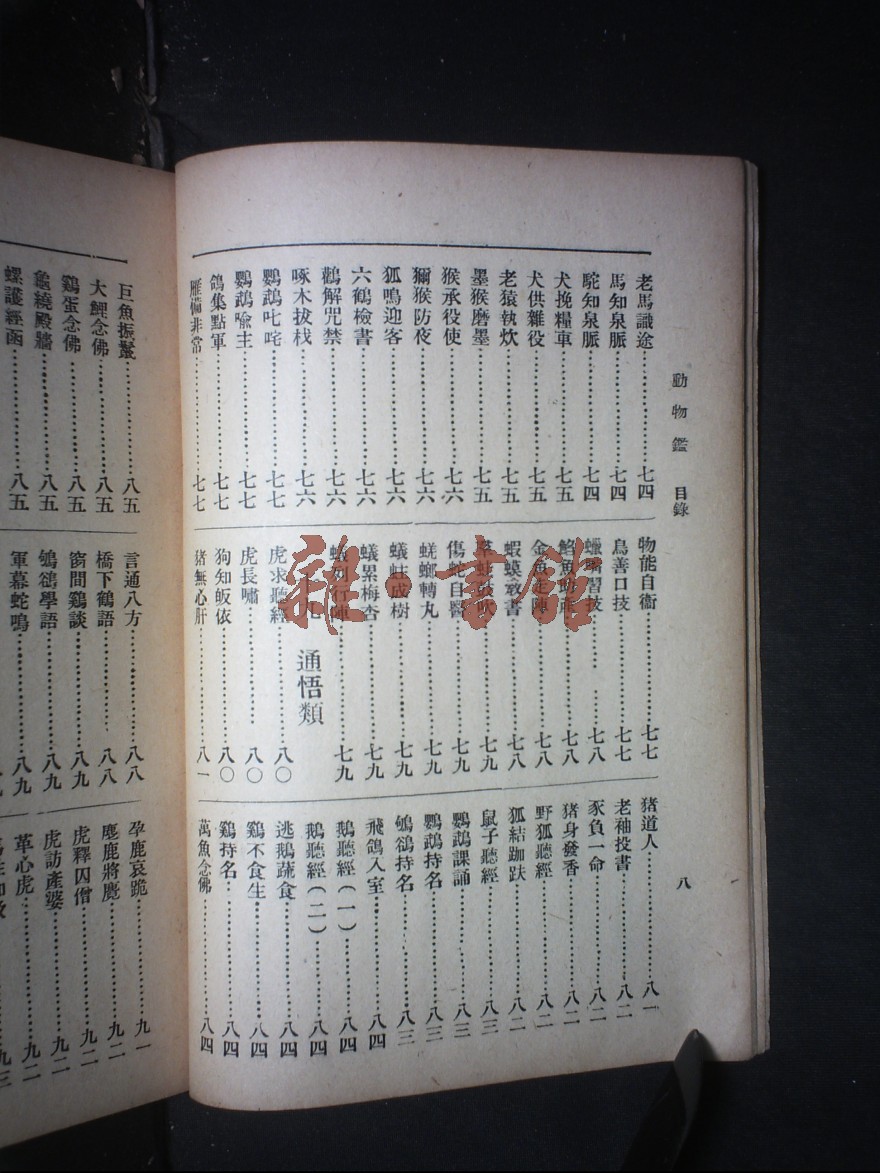 動物鑑 目錄 八
老馬識途……七四
馬知泉脈……七四
駝知泉脈……七四
犬挽糧車……七五
犬供雜役……七五
老猿執炊……七五
墨猴磨墨……七五
猴承役使……七六
獼猴防夜……七六
狐鳴迎客……七六
六鶴檢書……七六
鸛解咒禁……七六
啄木拔栈……七六
鸚鵡叱咤……七七
鸚鵡喩主……七七
鴿集點軍……七七
雁備非常……七七
物能自衞……七七
鳥善口技……七七
蠟嘴習技……七八
金魚走陣……七八
蝦蟆教書……七八
傷蛇自醫……七九
蜣螂轉丸……七九
蟻蛀成樹……七九
蟻累梅杏……七九
蟻列行陣……七九
通悟類
虎求聽經……八〇
虎長嘯……八〇
狗知皈依……八〇
猪無心肝……八一
猪道人……八一
老䄂投書……八二
豕負一命……八二
猪身發香……八二
野狐聽經……八二
狐結跏趺……八二
鼠子聽經……八三
鸚鵡課誦……八三
鸚鵡持名……八三
鴝鵒持名……八三
飛鴿入室……八四
鵝聽經(一)……八四
鵝聽經(二)……八四
逃鵝蔬食……八四
鷄不食生……八四
鷄持名……八四
萬魚念佛……八四
巨魚振鬣……八五
大鯉念佛……八五
鷄蛋念佛……八五
龜繞殿牆……八五
螺護經函
言通八方……八八
橋下鶴語……八八
窗間鷄談……八九
鴝鵒學語……八九
軍幕蛇鳴
孕鹿哀跪……九一
麈鹿將麑……九二
虎釋囚僧……九二
虎訪產婆……九二
革心虎……九二
雜·書館